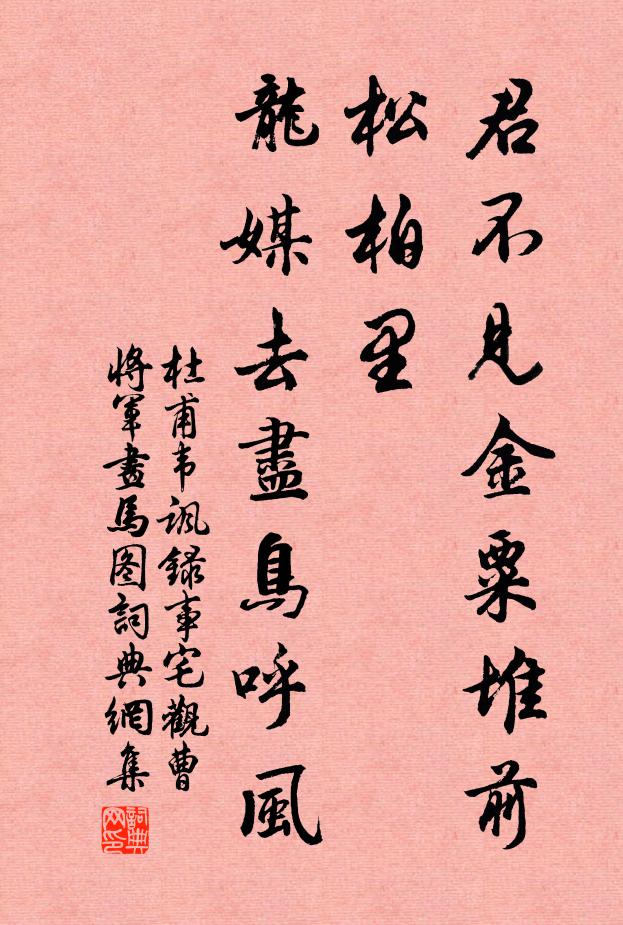 君不見金粟堆前
松柏里
龍媒去盡鳥呼風
杜甫韦諷錄事宅觀曹
將軍畫馬图詞典網集
詞典
网印